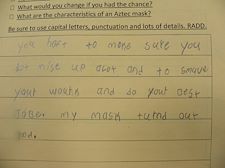 ☐ What would you change if you had the chance?
☐ What are the characteristics of an Aztec mask?
Be sure to use capital letters, punctuation and lots of details. RADD.
you haft to make sure you
do not up alot and to
your and do your best
my mask turnd out